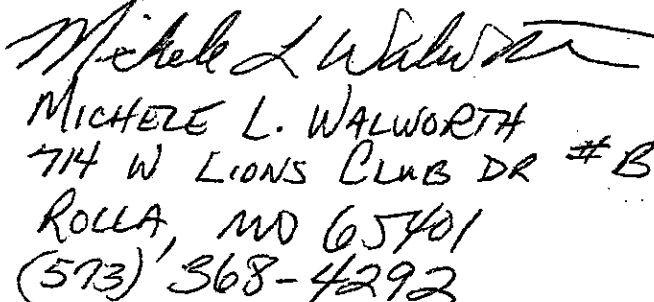 Michele L Walworth
MICHELE L. WALWORTH
714 W LIONS CLUB DR #B
ROLLA, MO 65401
(573) 368-4292